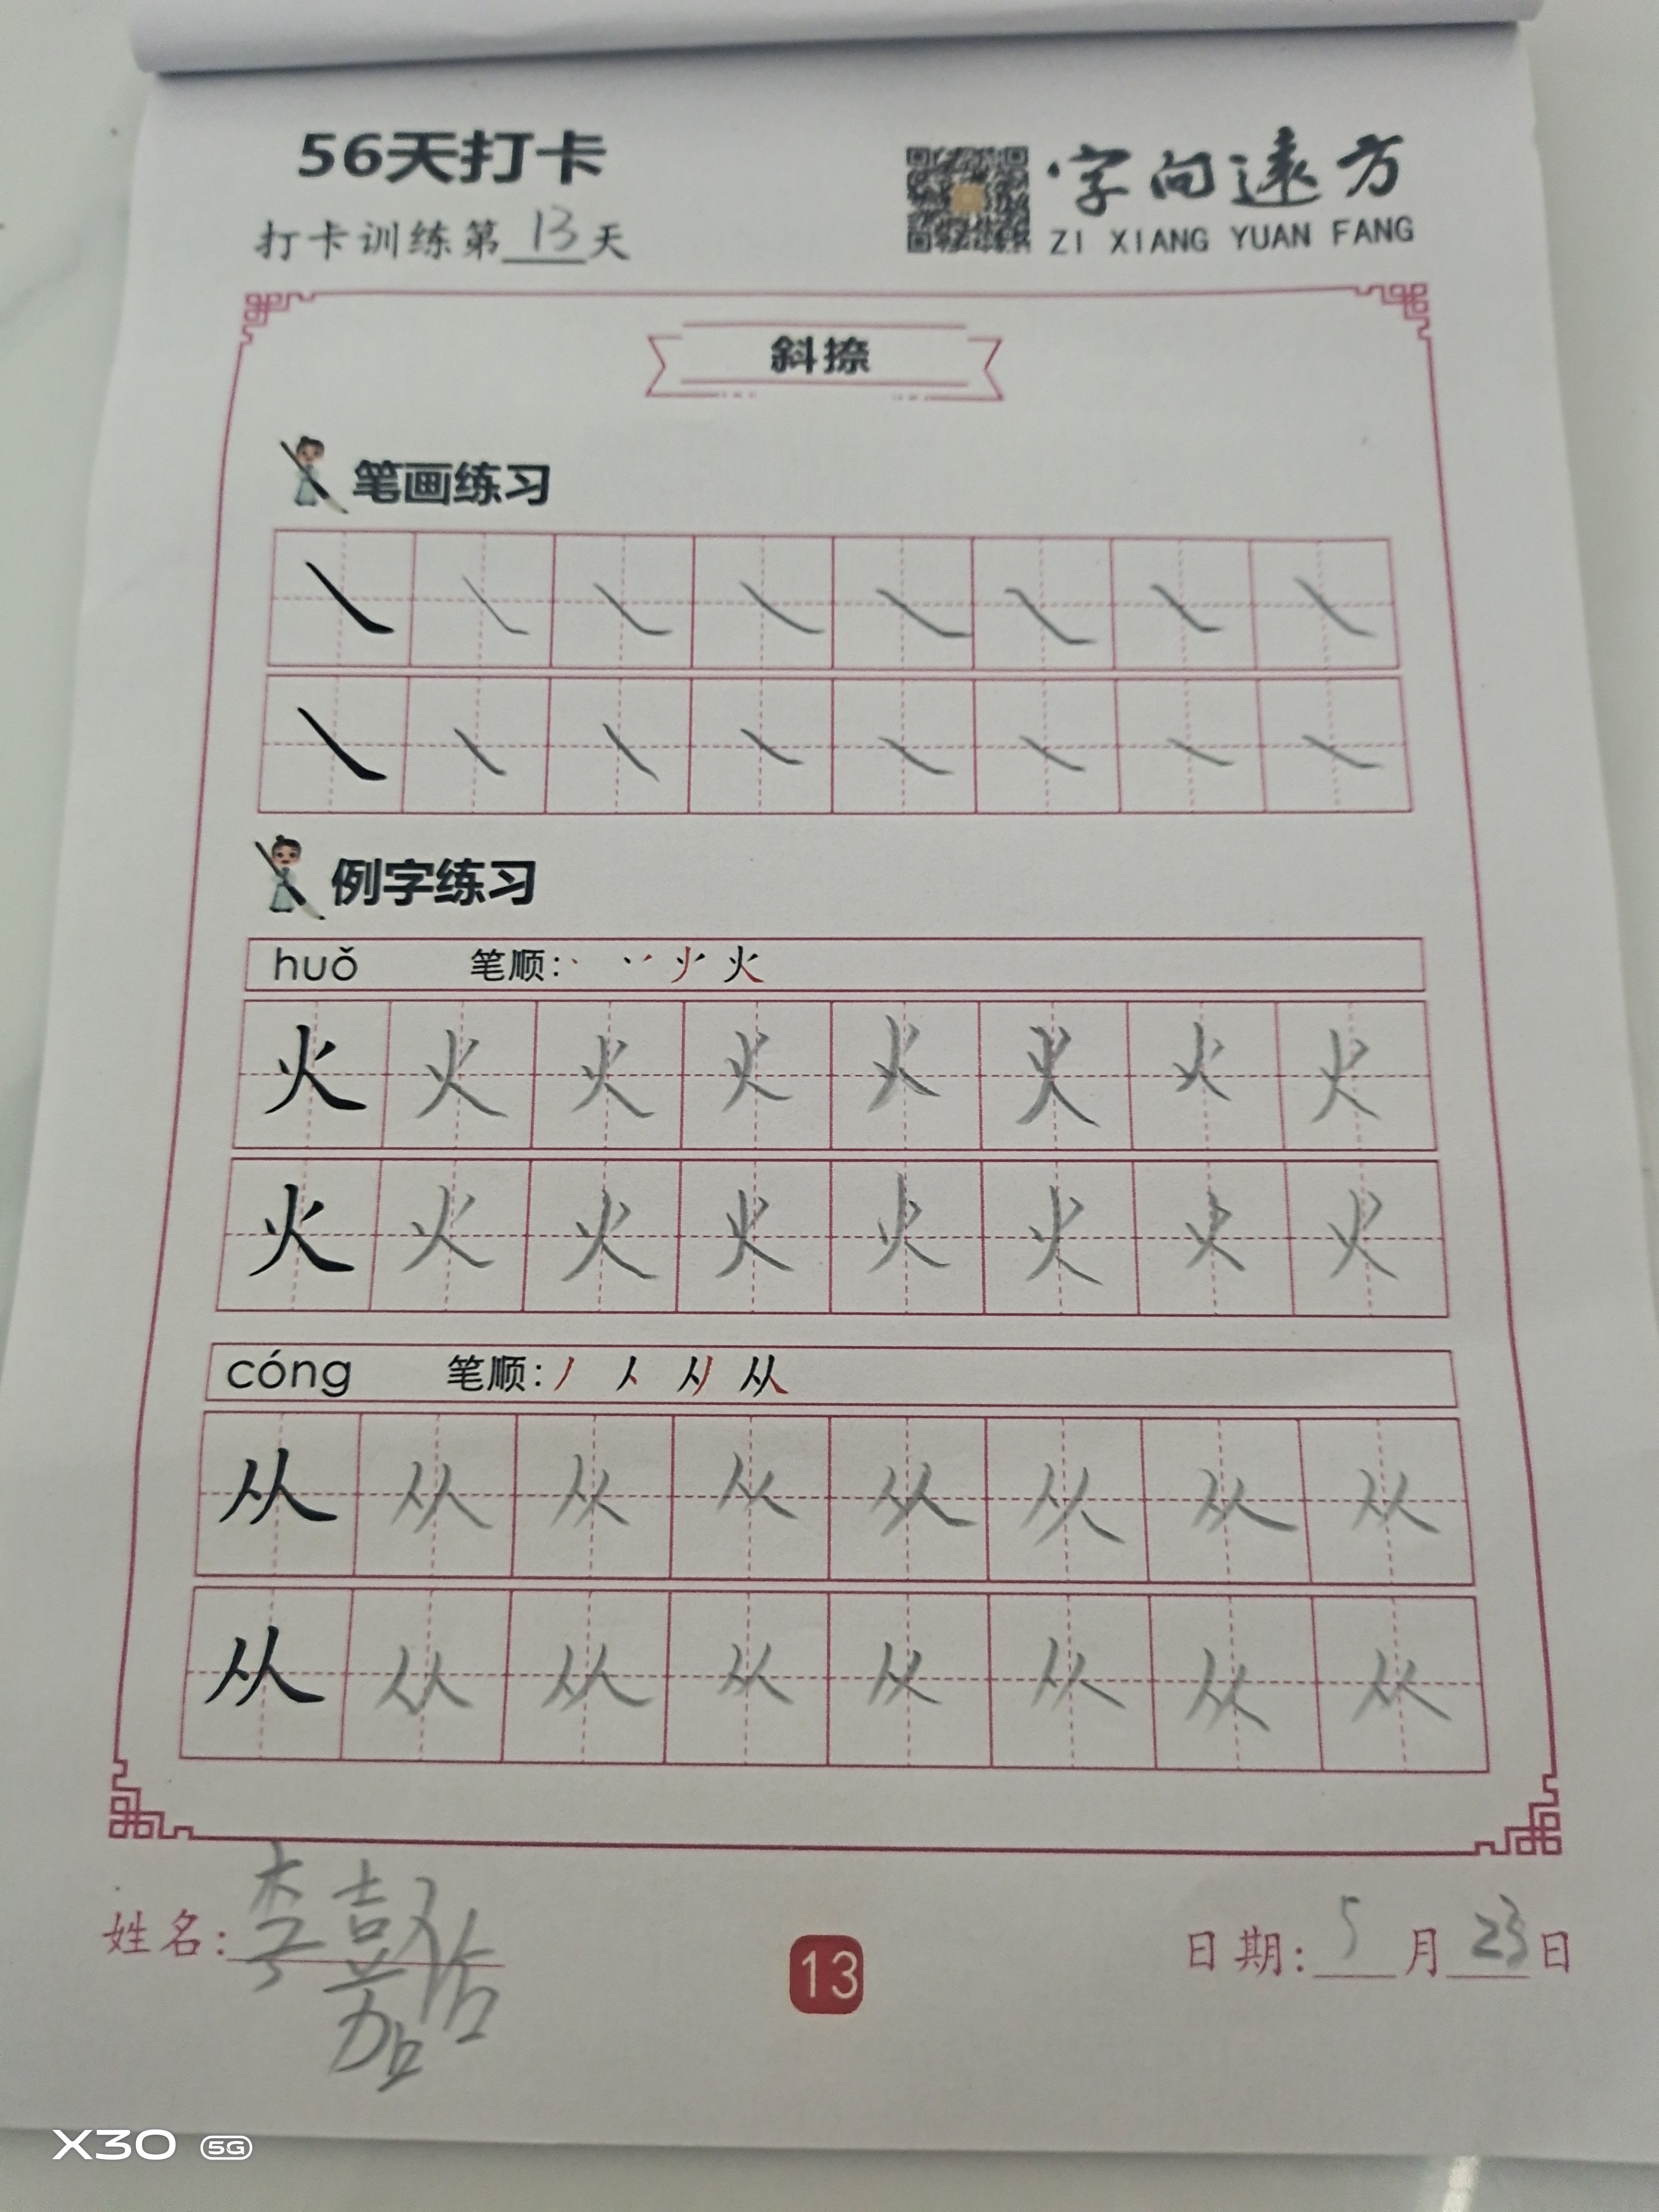 56天打卡
字向远方
打卡训练第13天
ZI XIANG YUAN FANG
斜捺
笔画练习
例字练习
huǒ 笔顺：火
火火火火火火火火
火火火火火火火火
cóng 笔顺：从
从从从从从从从从
从从从从从从从从
姓名：李嘉
13
日期：5月23日
X30 5G